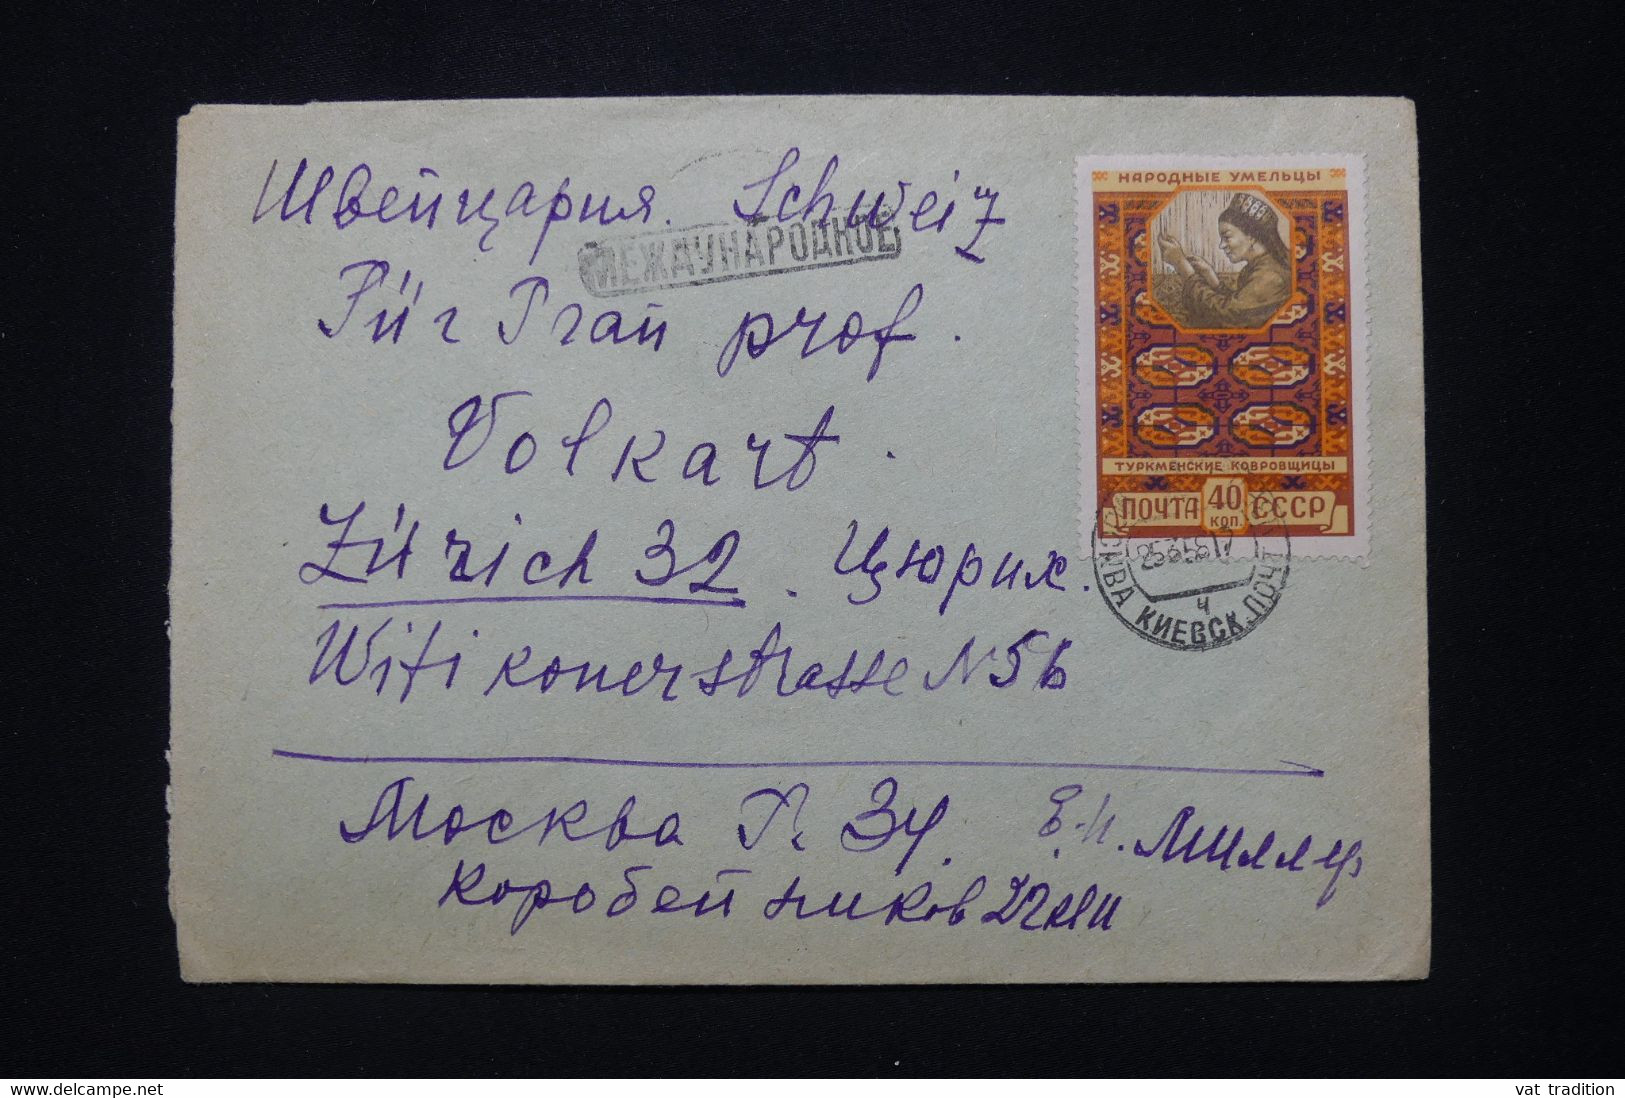 Швейцария. Schweiz
МЕЖДУНАРОДНОЕ
Für Frau prof.
Volkart.
Zürich 32. Цюрих.
Witikonerstrasse N 56
Москва Г. 34. Е. И. Миллер
Коробейников
НАРОДНЫЕ УМЕЛЬЦЫ
ТУРКМЕНСКИЕ КОВРОВЩИЦЫ
ПОЧТА 40 КОП. СССР
МОСКВА КИЕВСК. ПОЧТ
vat tradition